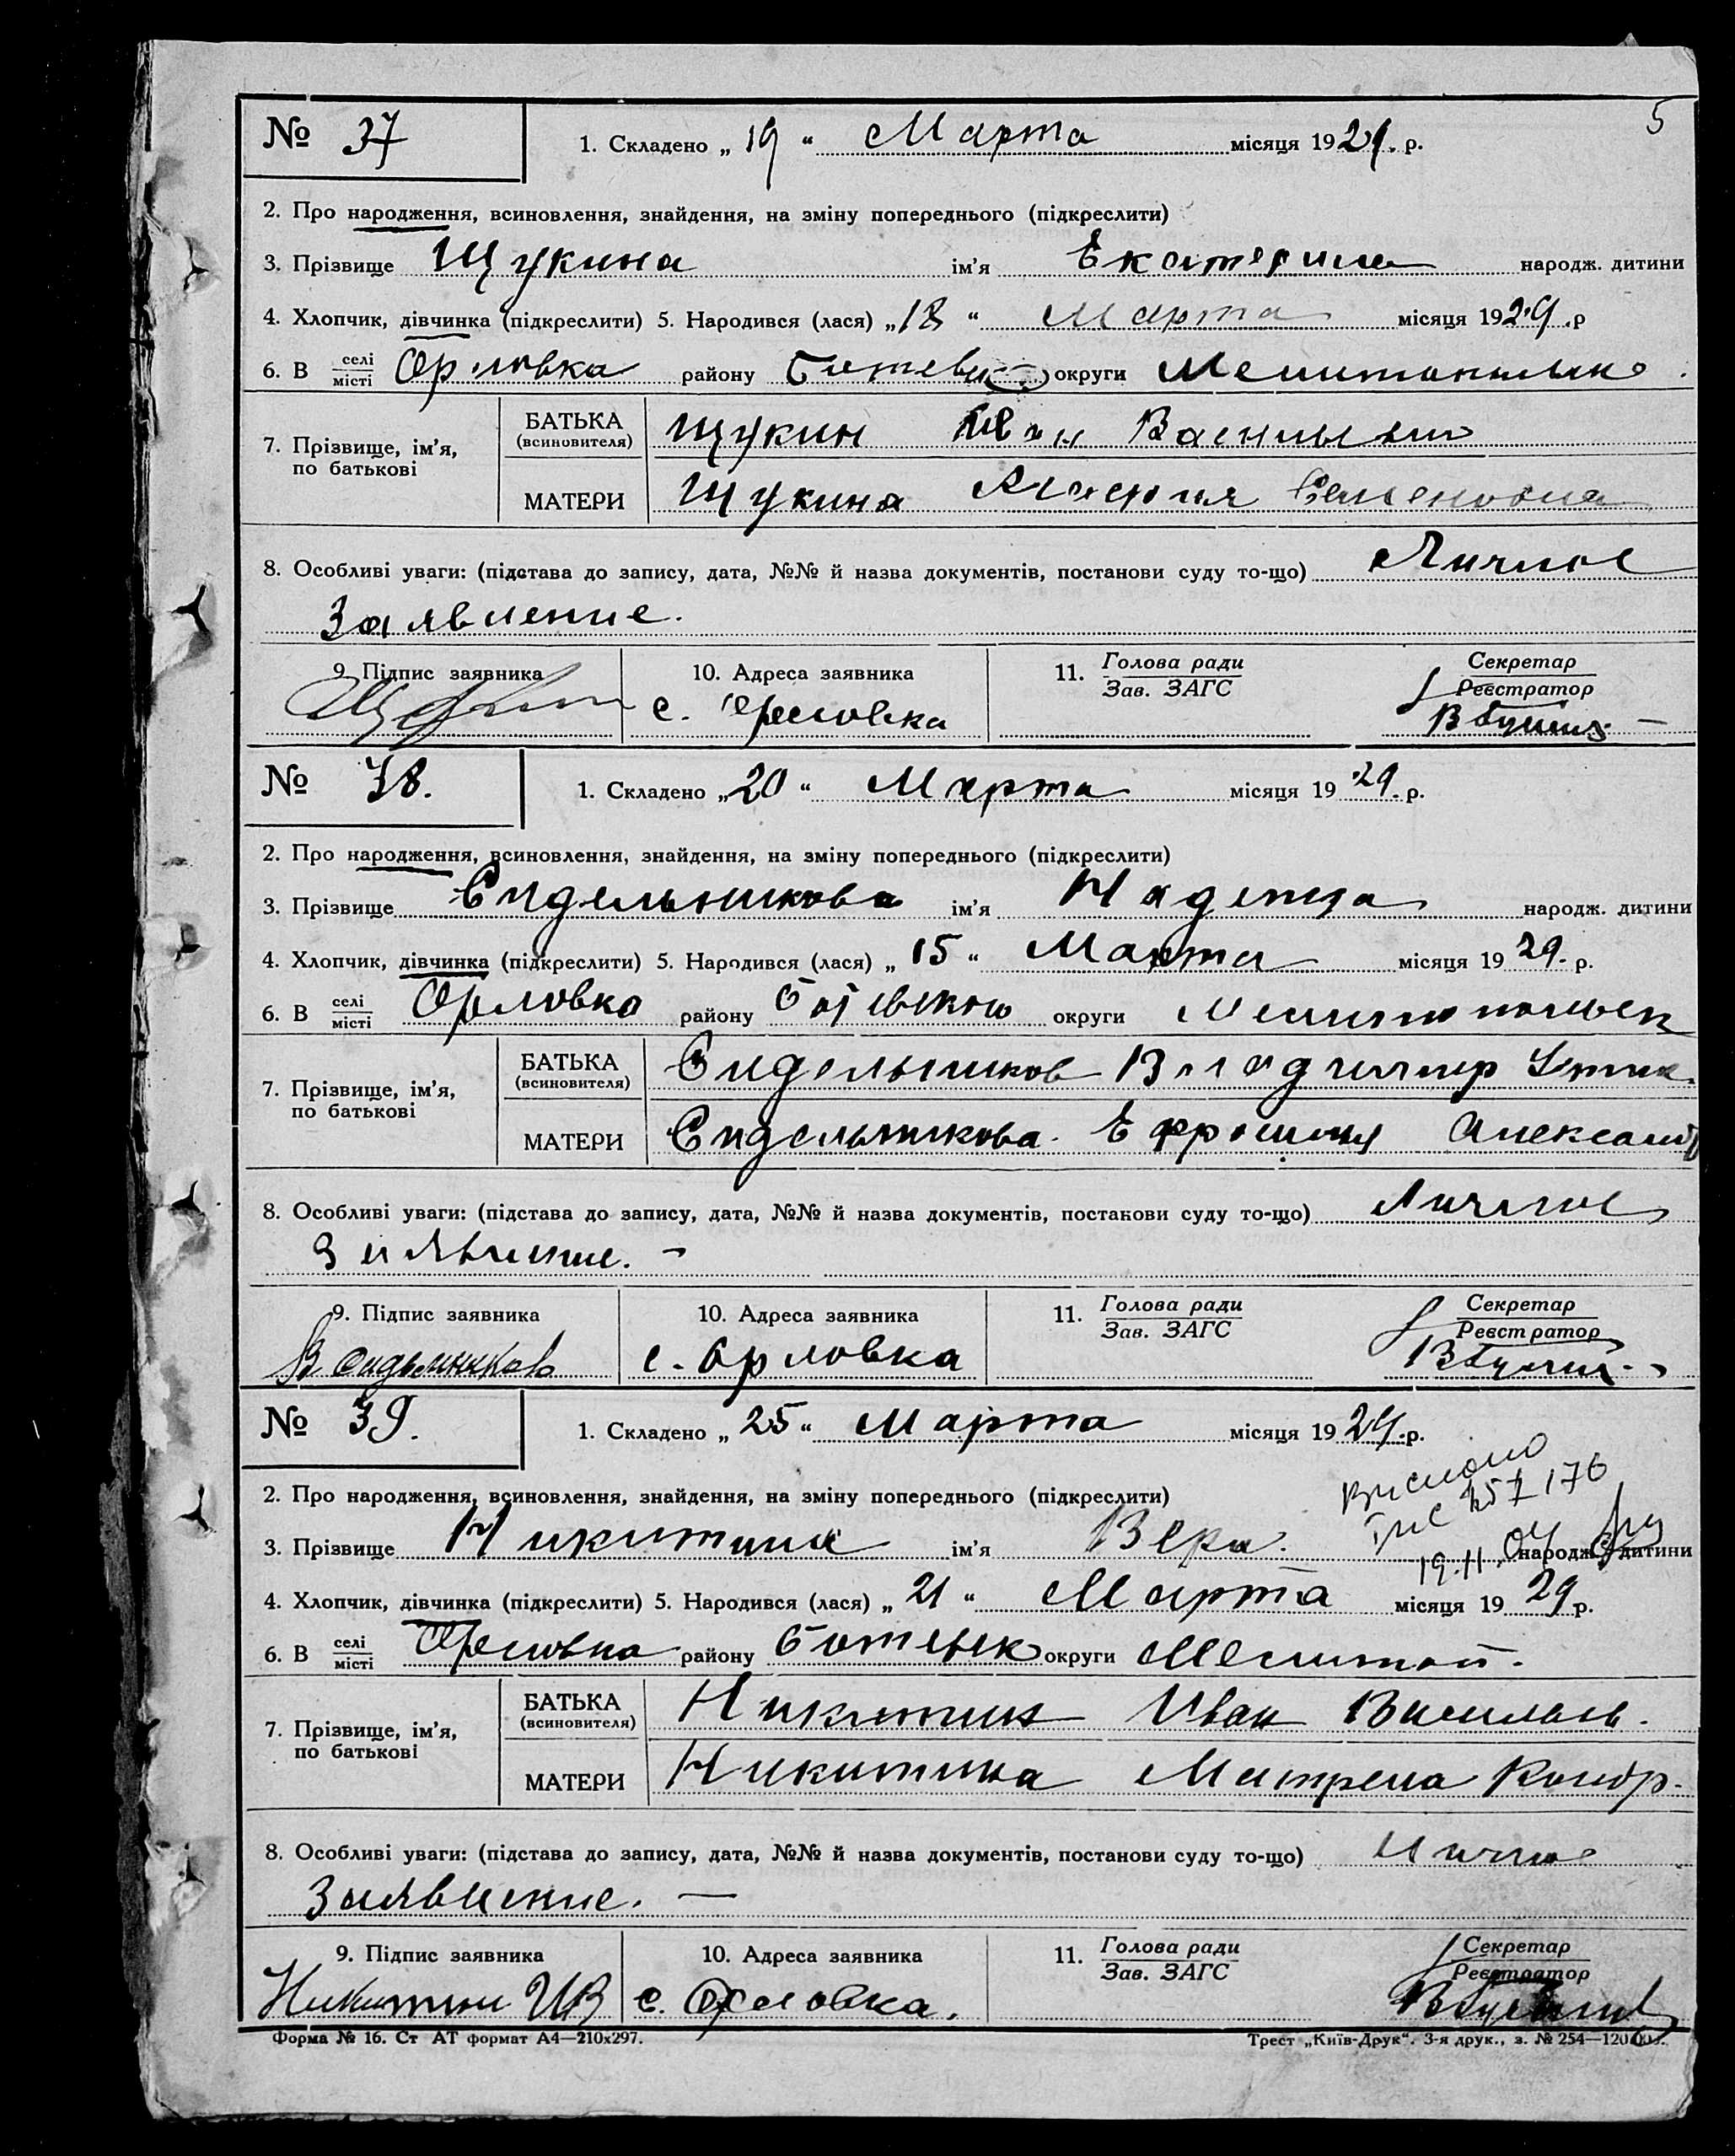 5
№ 37 1. Складено „ 19 “ Марта місяця 1929. р.
2. Про народження, всиновлення, знайдення, на зміну попереднього (підкреслити)
3. Прізвище Щукина ім’я Екатерина народж. дитини
4. Хлопчик, дівчинка (підкреслити) 5. Народився (лася) „ 18 “ Марта місяця 1929 .р
6. В селі/місті Орловка району округи
7. Прізвище, ім’я, по батькові БАТЬКА (всиновителя) Щукин Иван
МАТЕРИ Щукина Семеновна
8. Особливі уваги: (підстава до запису, дата, №№ й назва документів, постанови суду то-що) Личное
Заявление.
9. Підпис заявника 10. Адреса заявника 11. Голова ради Секретар
Зав. ЗАГС Реєстратор
с. Орловка
№ 38. 1. Складено „ 20 “ Марта місяця 19 29. р.
2. Про народження, всиновлення, знайдення, на зміну попереднього (підкреслити)
3. Прізвище Сидельникова ім’я народж. дитини
4. Хлопчик, дівчинка (підкреслити) 5. Народився (лася) „ 15 “ Марта місяця 19 29. р.
6. В селі/місті Орловка району округи
7. Прізвище, ім’я, по батькові БАТЬКА (всиновителя) Сидельников Владимир
МАТЕРИ Сидельникова.
8. Особливі уваги: (підстава до запису, дата, №№ й назва документів, постанови суду то-що) Личное
Заявление. –
9. Підпис заявника 10. Адреса заявника 11. Голова ради Секретар
Зав. ЗАГС Реєстратор
В Сидельников с. Орловка
№ 39. 1. Складено „ 25 “ Марта місяця 19 29. р.
2. Про народження, всиновлення, знайдення, на зміну попереднього (підкреслити)
3. Прізвище Никитина ім’я Вера. народж. дитини
4. Хлопчик, дівчинка (підкреслити) 5. Народився (лася) „ 21 “ Марта місяця 19 29 р.
6. В селі/місті Орловка району Ботевск округи Мелитоп.
7. Прізвище, ім’я, по батькові БАТЬКА (всиновителя) Никитин Иван
МАТЕРИ Никитина Матрена Кондр.
8. Особливі уваги: (підстава до запису, дата, №№ й назва документів, постанови суду то-що) Личное
Заявление. —
9. Підпис заявника 10. Адреса заявника 11. Голова ради Секретар
Зав. ЗАГС Реєстратор
Никитин ИВ с. Орловка.
Форма № 16. Ст АТ формат А4—210x297. Трест „Київ-Друк“. 3-я друк., з. № 254—